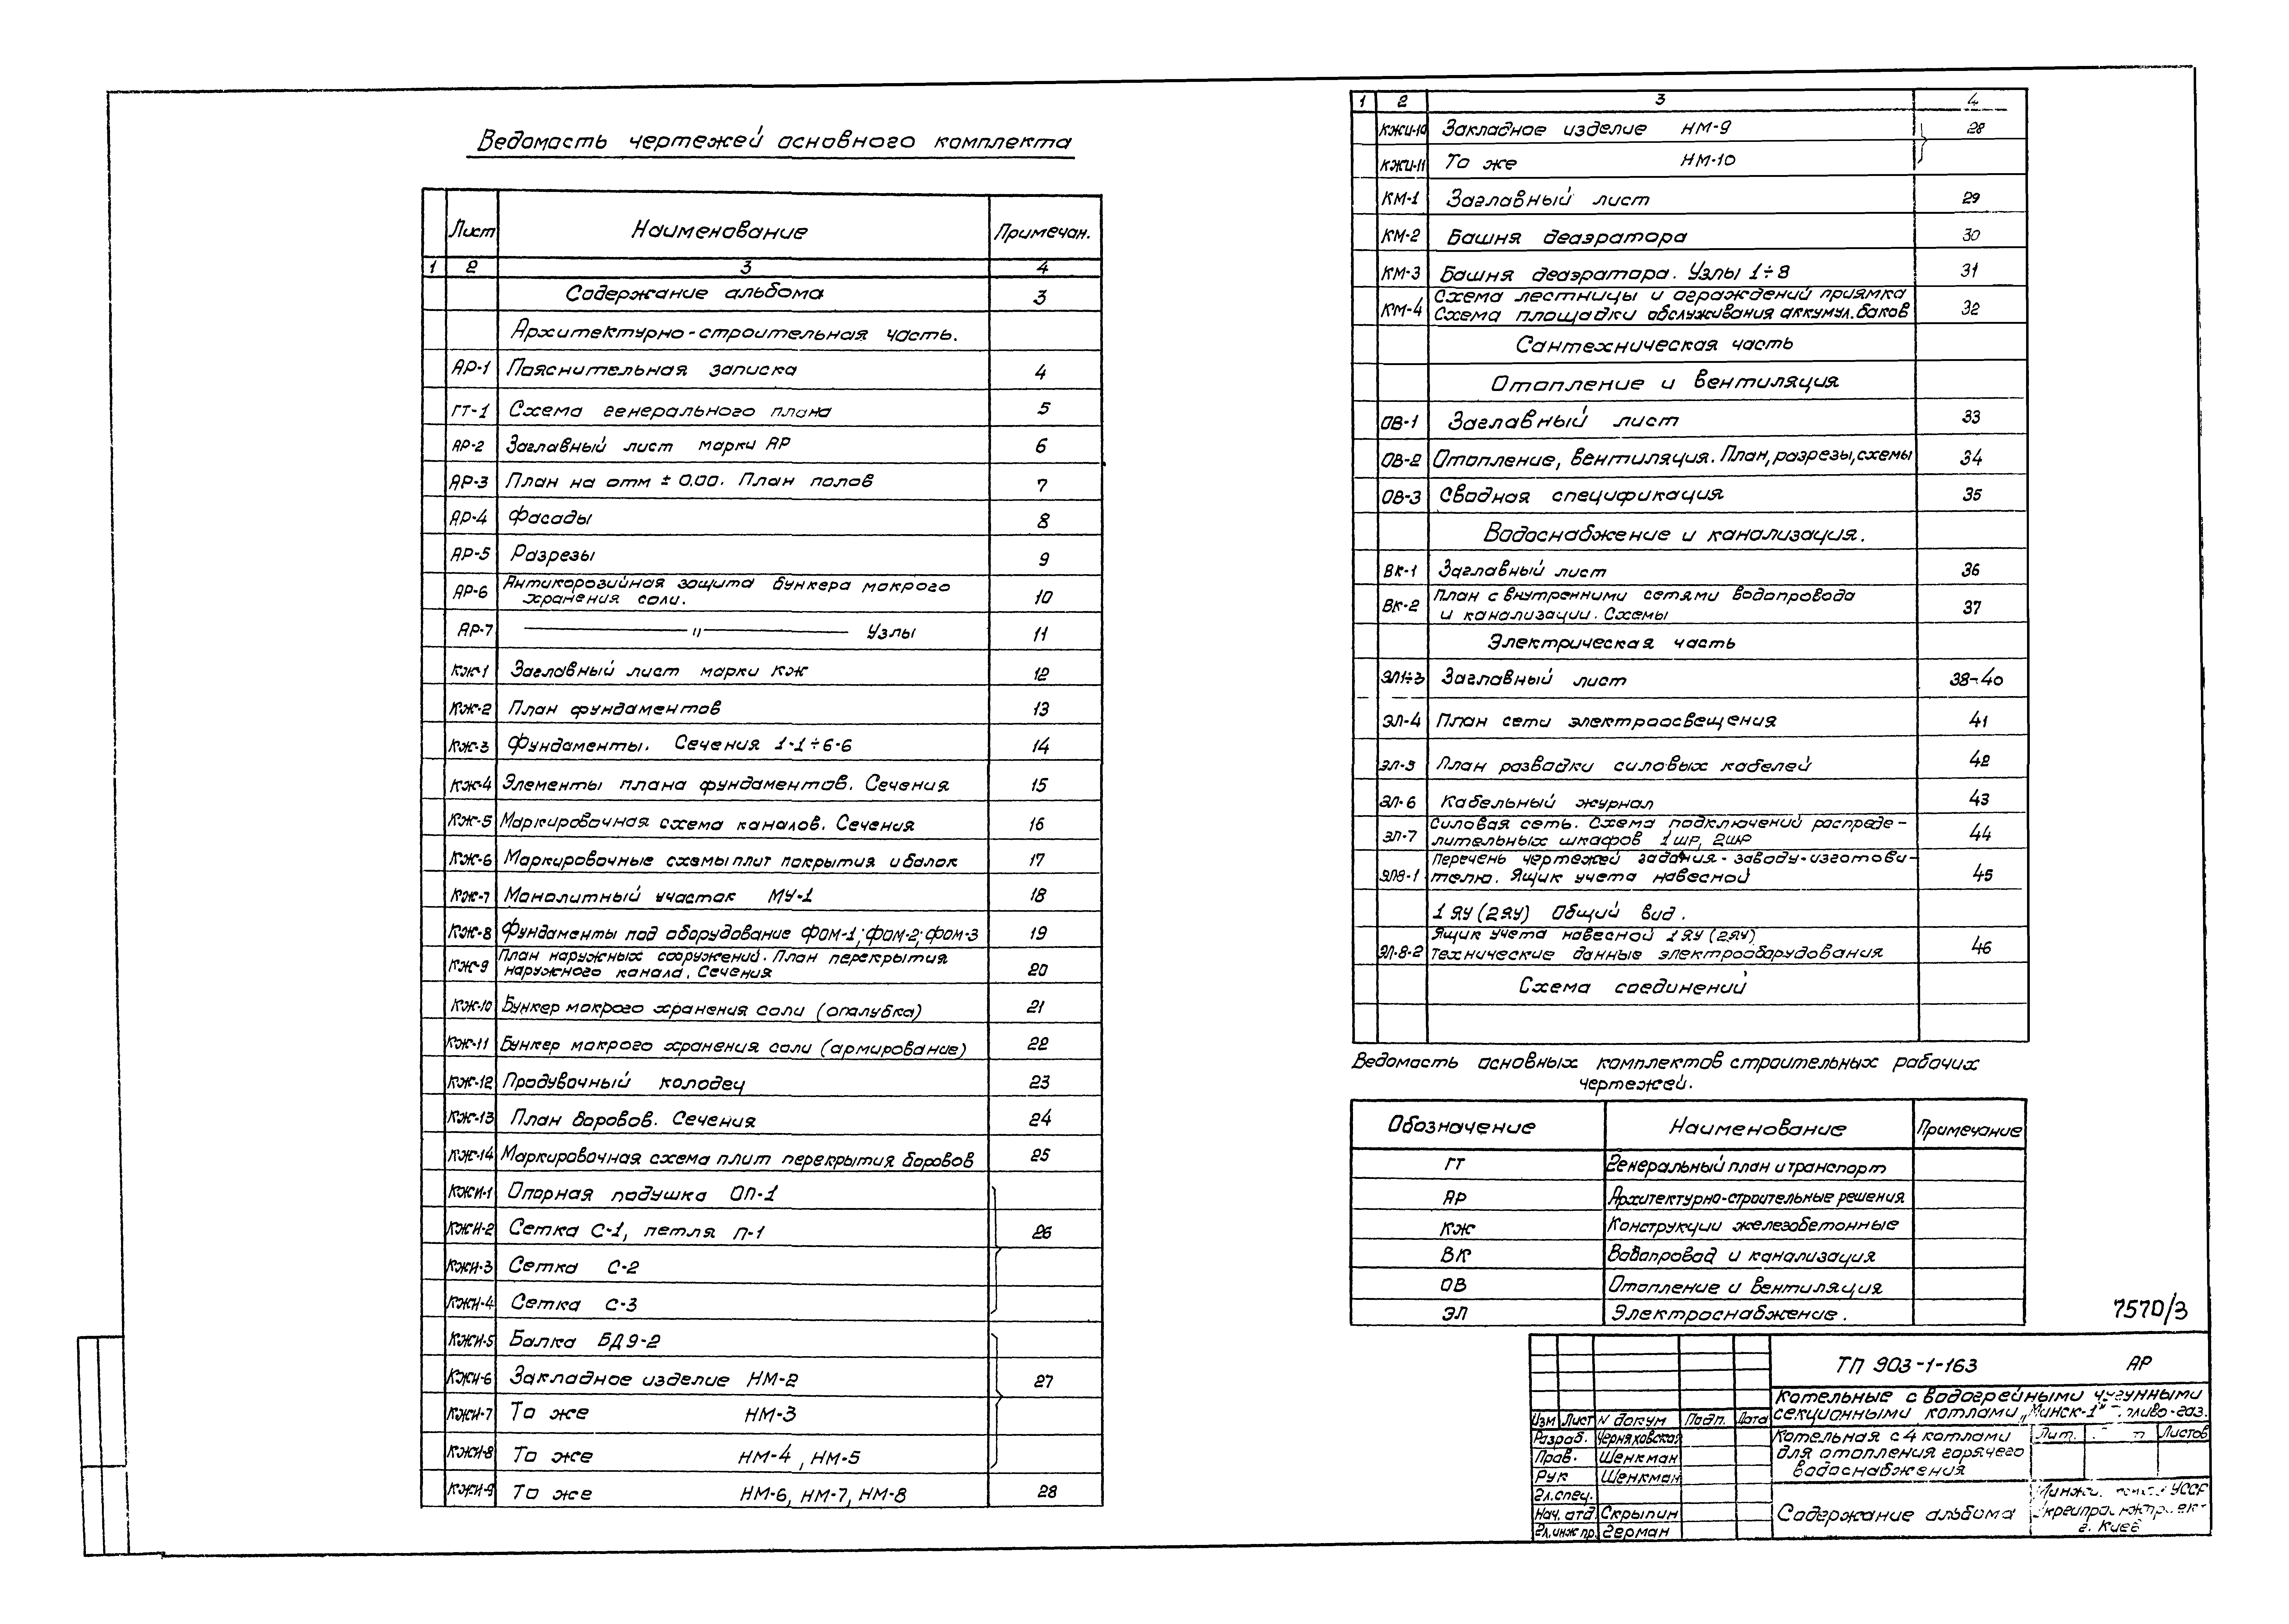 Ведомость чертежей основного комплекта
Лист Наименование Примечан.
1 2 3 4
Содержание альбома 3
Архитектурно-строительная часть.
АР-1 Пояснительная записка 4
ГТ-1 Схема генерального плана 5
АР-2 Заглавный лист марки АР 6
АР-3 План на отм ± 0.00. План полов 7
АР-4 Фасады 8
АР-5 Разрезы 9
АР-6 Антикорозийная защита бункера мокрого
хранения соли. 10
АР-7 —"— Узлы 11
КЖ-1 Заглавный лист марки КЖ 12
КЖ-2 План фундаментов 13
КЖ-3 Фундаменты. Сечения 1-1÷6-6 14
КЖ-4 Элементы плана фундаментов. Сечения 15
КЖ-5 Маркировочная схема каналов. Сечения 16
КЖ-6 Маркировочные схемы плит покрытия и балок 17
КЖ-7 Монолитный участок МУ-1 18
КЖ-8 Фундаменты под оборудование ФОМ-1; ФОМ-2; ФОМ-3 19
КЖ-9 План наружных сооружений. План перекрытия
наружного канала. Сечения 20
КЖ-10 Бункер мокрого хранения соли (опалубка) 21
КЖ-11 Бункер мокрого хранения соли (армирование) 22
КЖ-12 Продувочный колодец 23
КЖ-13 План боровов. Сечения 24
КЖ-14 Маркировочная схема плит перекрытия боровов 25
КЖИ-1 Опорная подушка ОП-1
КЖИ-2 Сетка С-1, петля П-1 26
КЖИ-3 Сетка С-2
КЖИ-4 Сетка С-3
КЖИ-5 Балка БД9-2
КЖИ-6 Закладное изделие НМ-2 27
КЖИ-7 То же НМ-3
КЖИ-8 То же НМ-4, НМ-5
КЖИ-9 То же НМ-6, НМ-7, НМ-8 28
1 2 3 4
КЖИ-10 Закладное изделие НМ-9 28
КЖИ-11 То же НМ-10
КМ-1 Заглавный лист 29
КМ-2 Башня деаэратора 30
КМ-3 Башня деаэратора. Узлы 1÷8 31
КМ-4 Схема лестницы и ограждений приямка
Схема площадки обслуживания аккумул. баков 32
Сантехническая часть
Отопление и вентиляция
ОВ-1 Заглавный лист 33
ОВ-2 Отопление, вентиляция. План, разрезы, схемы 34
ОВ-3 Сводная спецификация 35
Водоснабжение и канализация.
ВК-1 Заглавный лист 36
ВК-2 План с внутренними сетями водопровода
и канализации. Схемы 37
Электрическая часть
ЭЛ1÷3 Заглавный лист 38-40
ЭЛ-4 План сети электроосвещения 41
ЭЛ-5 План разводки силовых кабелей 42
ЭЛ-6 Кабельный журнал 43
ЭЛ-7 Силовая сеть. Схема подключений распреде-
лительных шкафов 1ШР, 2ШР 44
ЭЛ8-1 Перечень чертежей задания-заводу-изготови-
телю. Ящик учета навесной 45
1ЯУ (2ЯУ) Общий вид.
ЭЛ-8-2 Ящик учета навесной 1ЯУ (2ЯУ)
технические данные электрооборудования 46
Схема соединений
Ведомость основных комплектов строительных рабочих
чертежей.
Обозначение Наименование Примечание
ГТ Генеральный план и транспорт
АР Архитектурно-строительные решения
КЖ Конструкции железобетонные
ВК Водопровод и канализация
ОВ Отопление и вентиляция
ЭЛ Электроснабжение.
7570/3
ТП 903-1-163 АР
Котельные с водогрейными чугунными
секционными котлами „Минск-1"
Изм Лист N докум Подп. Дата
Котельная с 4 котлами
для отопления горячего
водоснабжения
Лит. Листов
Разраб. Черняховская
Пров. Шенкман
Рук Шенкман
Гл.спец.
Нач. отд Скрыпин
Гл.инж пр. Герман
Содержание альбома
УССР
г. Киев